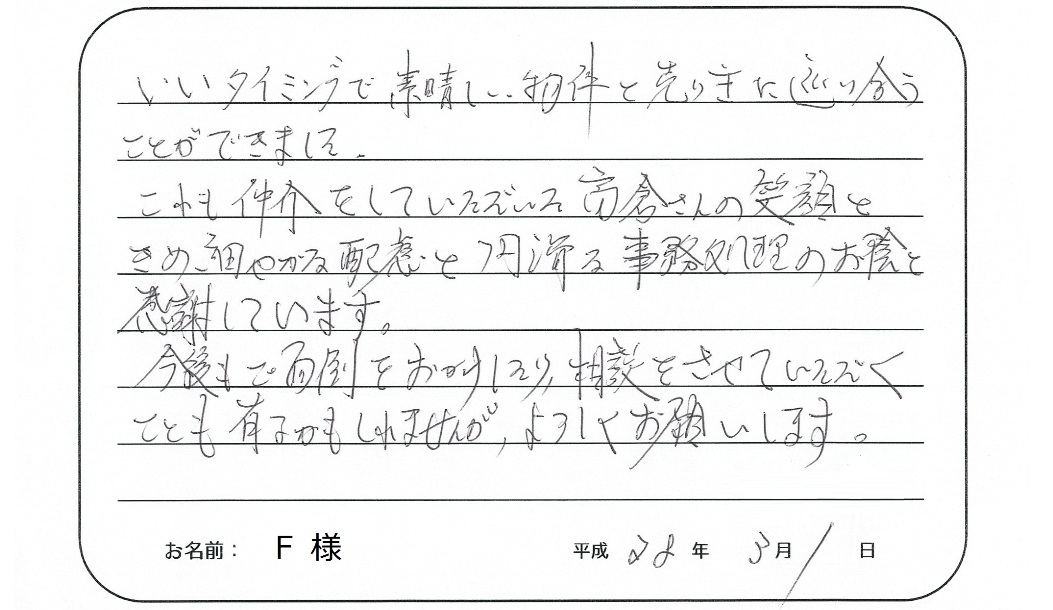 いいタイミングで素晴しい物件と売り主に巡り合う
ことができました。
これも仲介をしていただいた高倉さんの笑顔と
きめ細やかな配慮と円滑な事務処理のお陰と
感謝しています。
今後もご面倒をおかけしたり、相談をさせていただく
ことも有るかもしれませんが、よろしくお願いします。
お名前： F 様 平成 28 年 3 月 1 日